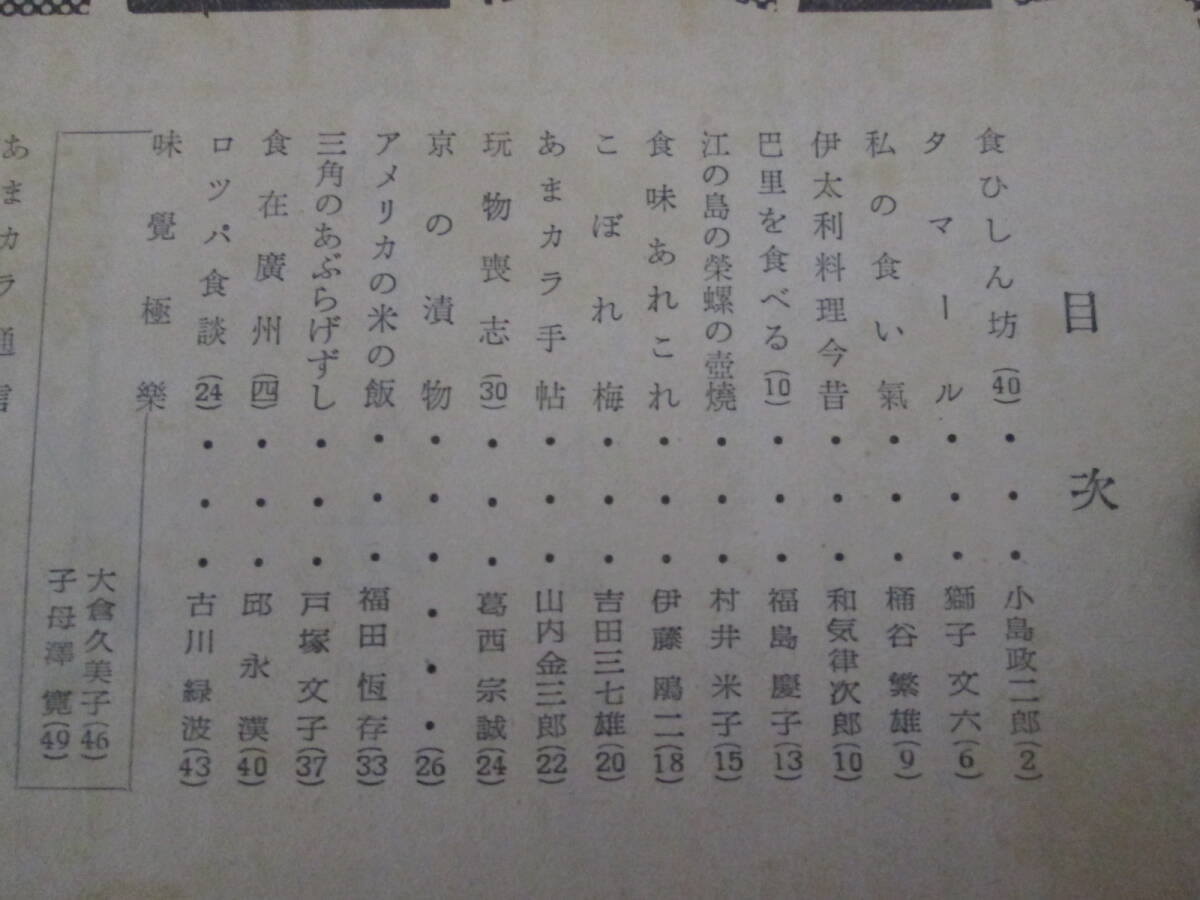 目次
食ひしん坊(40)・・・小島政二郎(2)
タマール・・・獅子文六(6)
私の食い氣・・・桶谷繁雄(9)
伊太利料理今昔・・・和気律次郎(10)
巴里を食べる(10)・・・福島慶子(13)
江の島の榮螺の壺燒・・・村井米子(15)
食味あれこれ・・・伊藤鷗二(18)
こぼれ梅・・・吉田三七雄(20)
あまカラ手帖・・・山内金三郎(22)
玩物喪志(30)・・・葛西宗誠(24)
京の漬物・・・・・・(26)
アメリカの米の飯・・・福田恆存(33)
三角のあぶらげずし・・・戸塚文子(37)
食在廣州(四)・・・邱永漢(40)
ロツパ食談(24)・・・古川緑波(43)
味覺極樂
大倉久美子(46)
子母澤寛(49)
あまカラ通信